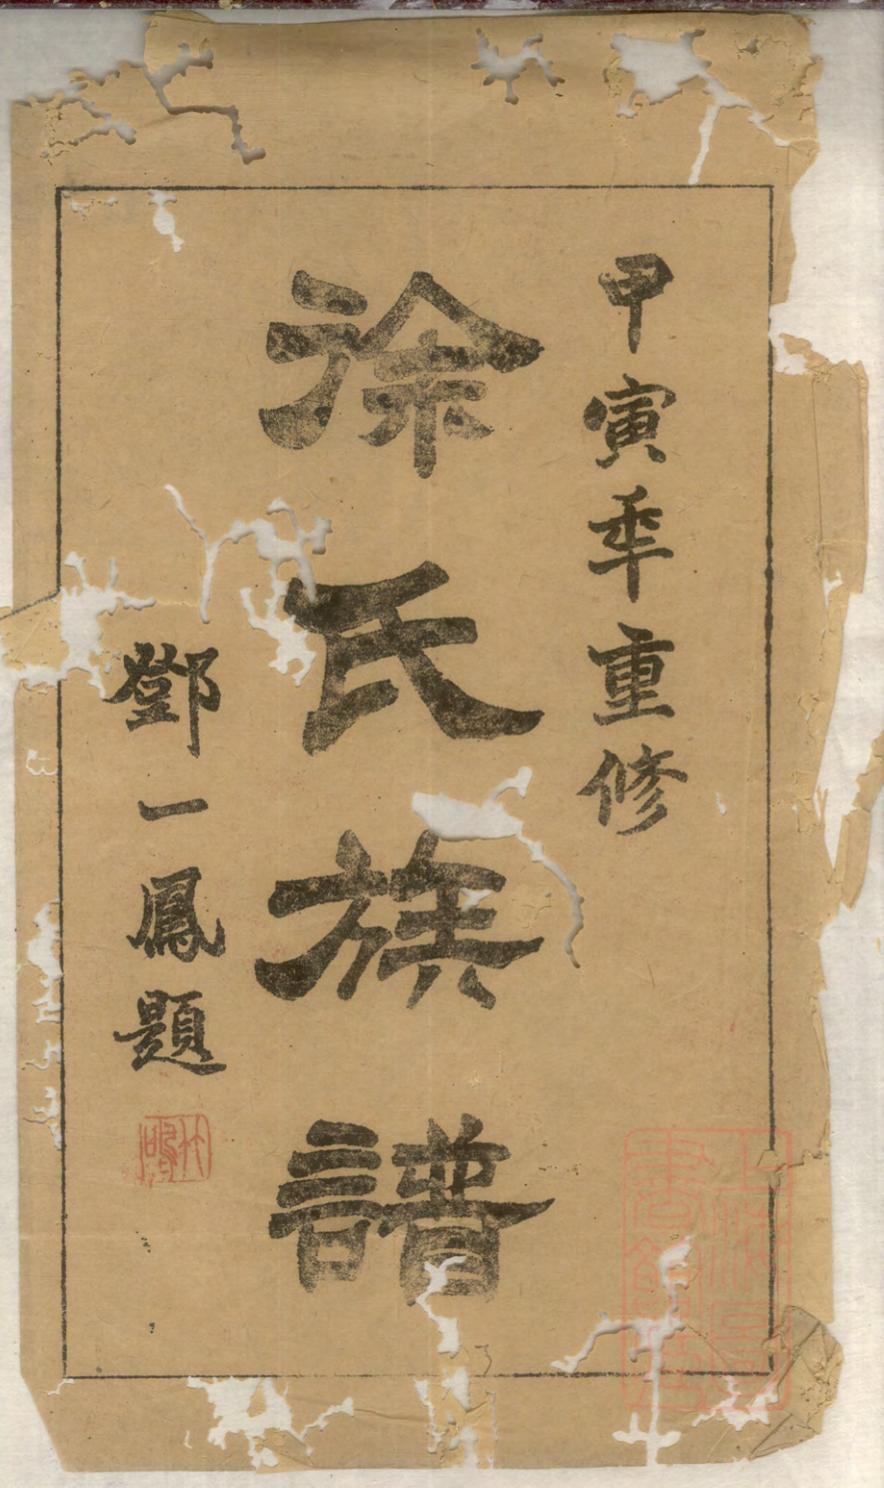 甲寅年重修
徐氏族譜
鄧一鳳題